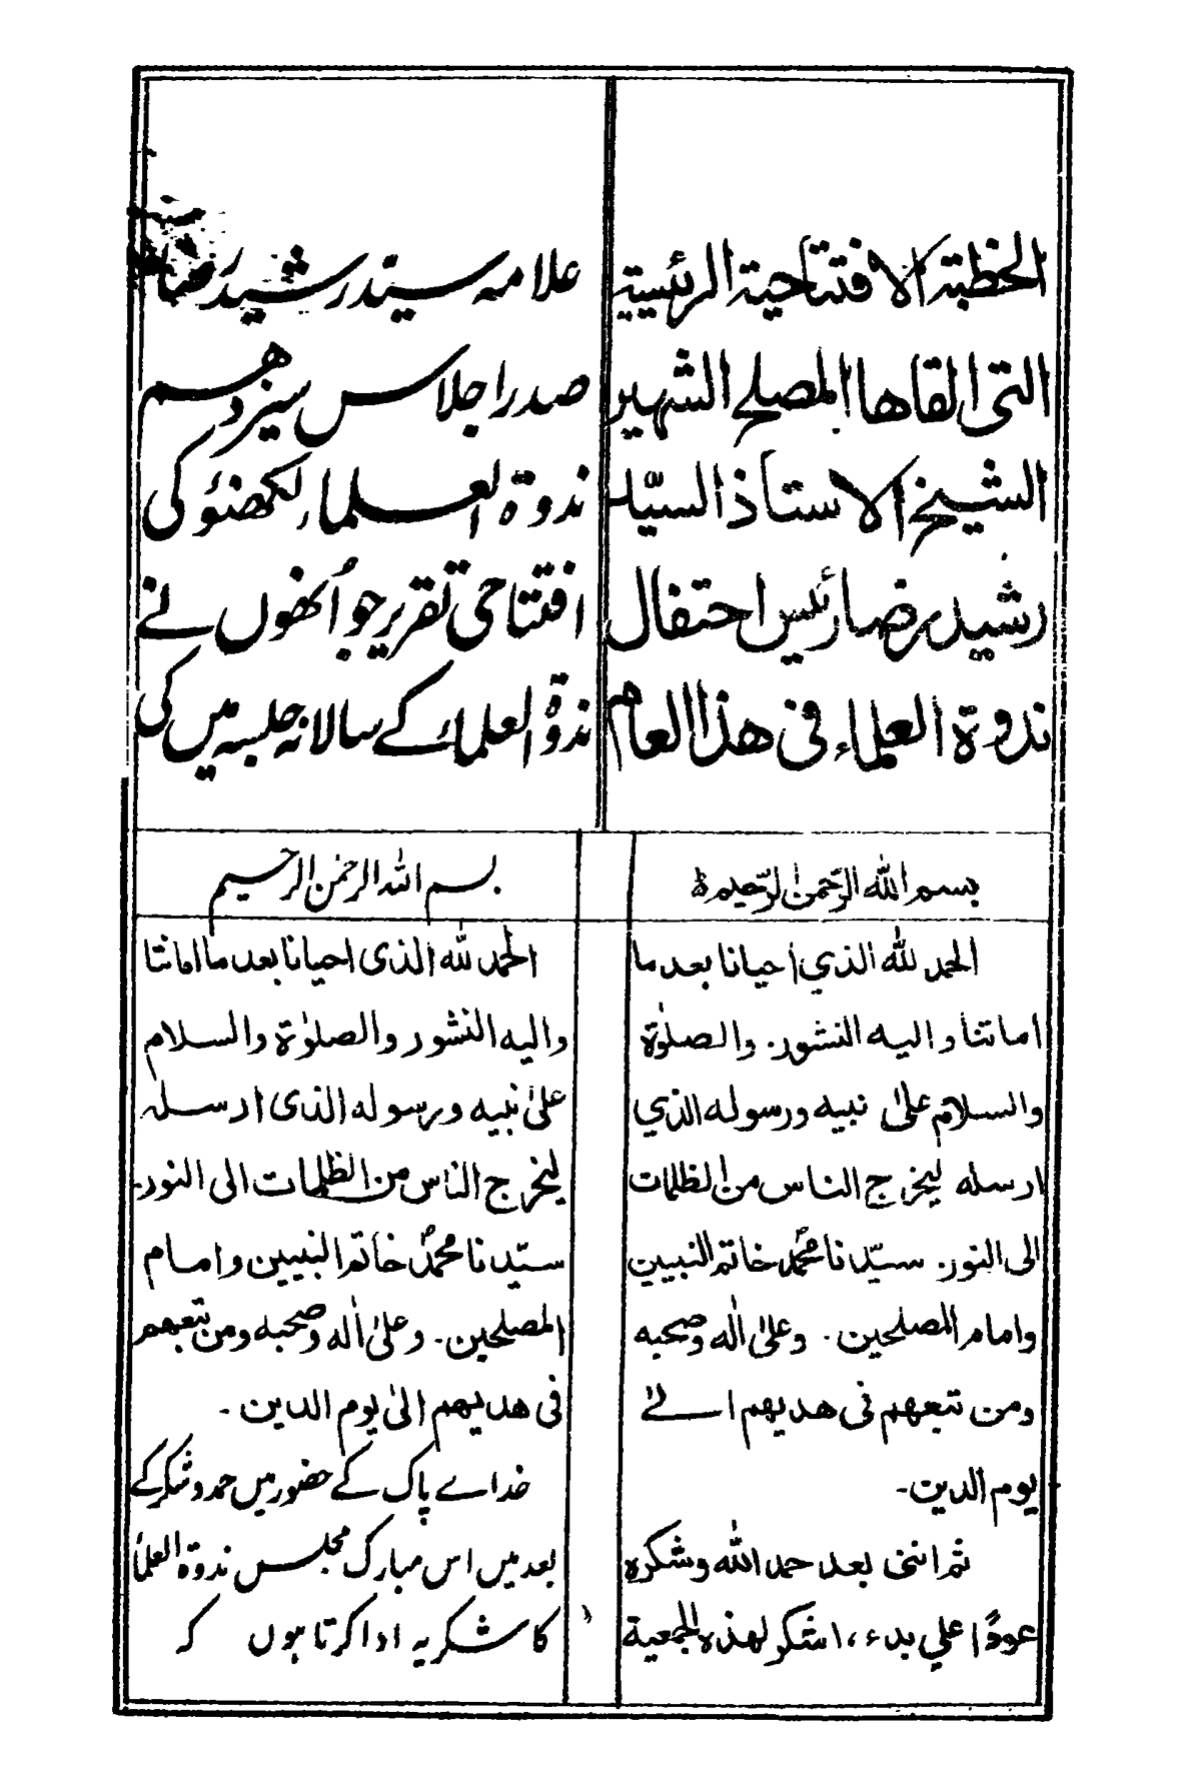 الخطبة الافتتاحية الرئيسية
التى القاها المصلح الشهير
الشيخ الاستاذ السيد
رشيد رضا رئيس احتفال
ندوة العلماء فى هذا العام
بسم الله الرّحمٰن الرّحيم
الحمد لله الذي احيانا بعد ما
اماتنا واليه النشور. والصلوٰة
والسلام علىٰ نبيه ورسوله الذي
ارسله ليخرج الناس من الظلمات
الى النور. سيّدنا محمدؐ خاتم النبيين
وامام المصلحين. وعلىٰ اٰله وصحبه
ومن تبعهم فى هديهم الىٰ
يوم الدين-
ثم اننى بعد حمد الله وشكره
عودًا علي بدء، اشكر لهذه الجمعية
علامه سيّد رشيد رضا
صدر اجلاس سیزدہم
ندوة العلماء لکھنؤ کی
افتتاحی تقریر جو اُنھوں نے
ندوۃ العلماء کے سالانہ جلسہ میں کی
بسم الله الرحمن الرحيم
الحمد لله الذى احيانا بعد ما اماتنا
واليه النشور والصلوٰة والسلام
علىٰ نبيه ورسوله الذى ارسله
ليخرج الناس من الظلمات الى النور.
سيّدنا محمدؐ خاتم النبيين وامام
المصلحين. وعلىٰ اٰله وصحبه ومن تبعهم
فى هديهم الىٰ يوم الدين-
خداے پاک کے حضور میں حمد و شکر کے
بعد میں اس مبارک مجلس ندوۃ العلماء
کا شکریہ ادا کرتا ہوں کہ